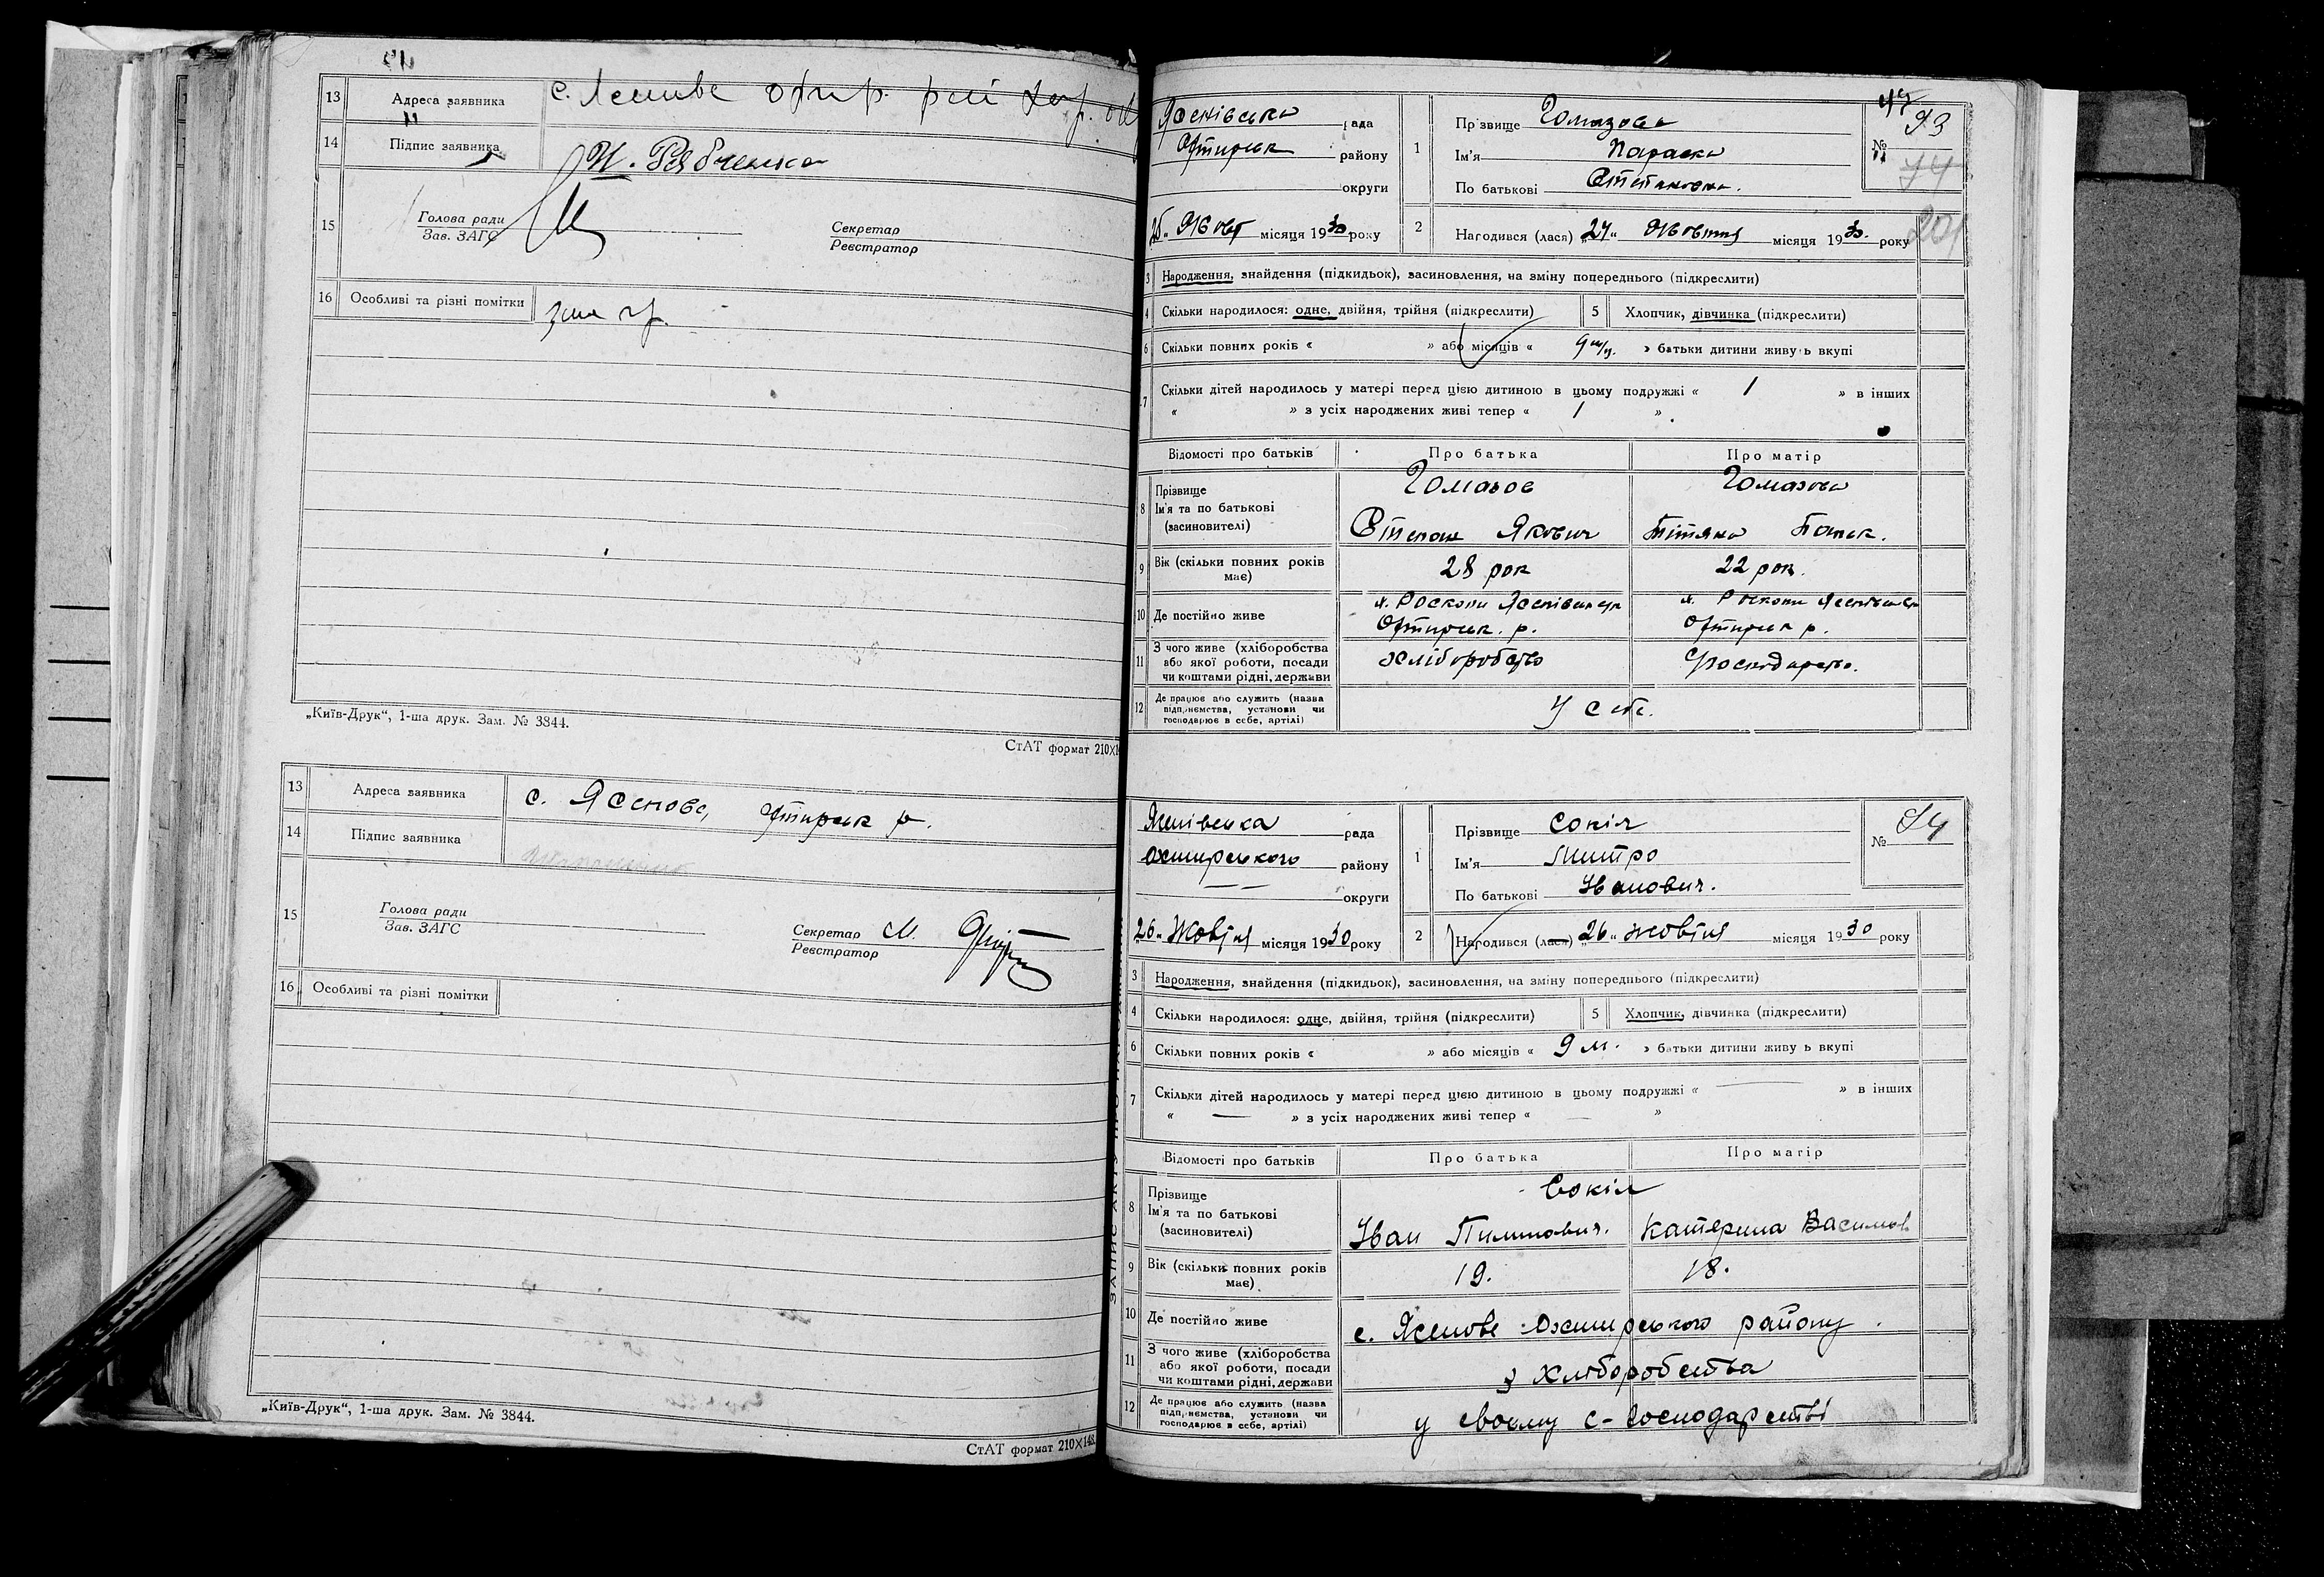 13 Адреса заявника с. Ясенове
14 Підпис заявника Рябченко
15 Голова ради
Зав. ЗАГС
Секретар
Реєстратор
16 Особливі та різні помітки
„Київ-Друк“, 1-ша друк. Зам. № 3844.
СтАТ формат 210×1
13 Адреса заявника с. Ясенове, Охтирськ р.
14 Підпис заявника
15 Голова ради
Зав. ЗАГС
Секретар М.
Реєстратор
16 Особливі та різні помітки
„Київ-Друк“, 1-ша друк. Зам. № 3844.
СтАТ формат 210×148
Ясенівська рада
Охтирськ району
округи
25 Жовт місяця 1930 року
1 Прізвище Гомазова
Ім'я Параска
По батькові Степановна.
№ 93
74
201
2 Народився (лася) „24“ Жовтня місяця 1930. року
3 Народження, знайдення (підкидьок), засиновлення, на зміну попереднього (підкреслити)
4 Скільки народилося: одне, двійня, трійня (підкреслити) 5 Хлопчик, дівчинка (підкреслити)
6 Скільки повних років « » або місяців « 9 » батьки дитини живуть вкупі
7 Скільки дітей народилось у матері перед цією дитиною в цьому подружжі « 1 » в інших
« » з усіх народжених живі тепер « 1 »
Відомості про батьків Про батька Про матір
8 Прізвище Гомазов Гомазова
Ім'я та по батькові
(засиновителі) Степан Якович Тітяна Панек.
9 Вік (скільки повних років має) 28 рок 22 рок.
10 Де постійно живе х. Роскопи Ясенівськ х. Роскопи Ясенівськ
Охтирськ. р. Охтирськ р.
11 З чого живе (хліборобства
або якої роботи, посади
чи коштами рідні, держави хліборобство Господарство.
12 Де працює або служить (назва
підприємства, установи чи
господарює в себе, артілі) У себе.
Ясенівська рада
Охтирського району
— — округи
26 „ Жовтня місяця 1930 року
1 Прізвище Сокіл
Ім'я Митро
По батькові Іванович.
№ 94
2 Народився (лася) „26“ жовтня місяця 1930 року
3 Народження, знайдення (підкидьок), засиновлення, на зміну попереднього (підкреслити)
4 Скільки народилося: одне, двійня, трійня (підкреслити) 5 Хлопчик, дівчинка (підкреслити)
6 Скільки повних років « » або місяців « 9 м. » батьки дитини живуть вкупі
7 Скільки дітей народилось у матері перед цією дитиною в цьому подружжі « — » в інших
« — » з усіх народжених живі тепер « — »
Відомості про батьків Про батька Про матір
8 Прізвище Сокіл
Ім'я та по батькові
(засиновителі) Іван Пилипович. Катерина Василов
9 Вік (скільки повних років має) 19. 18.
10 Де постійно живе с. Ясенове Охтирського району.
11 З чого живе (хліборобства
або якої роботи, посади
чи коштами рідні, держави з хліборобства
12 Де працює або служить (назва
підприємства, установи чи
господарює в себе, артілі) у своєму с-господарстві